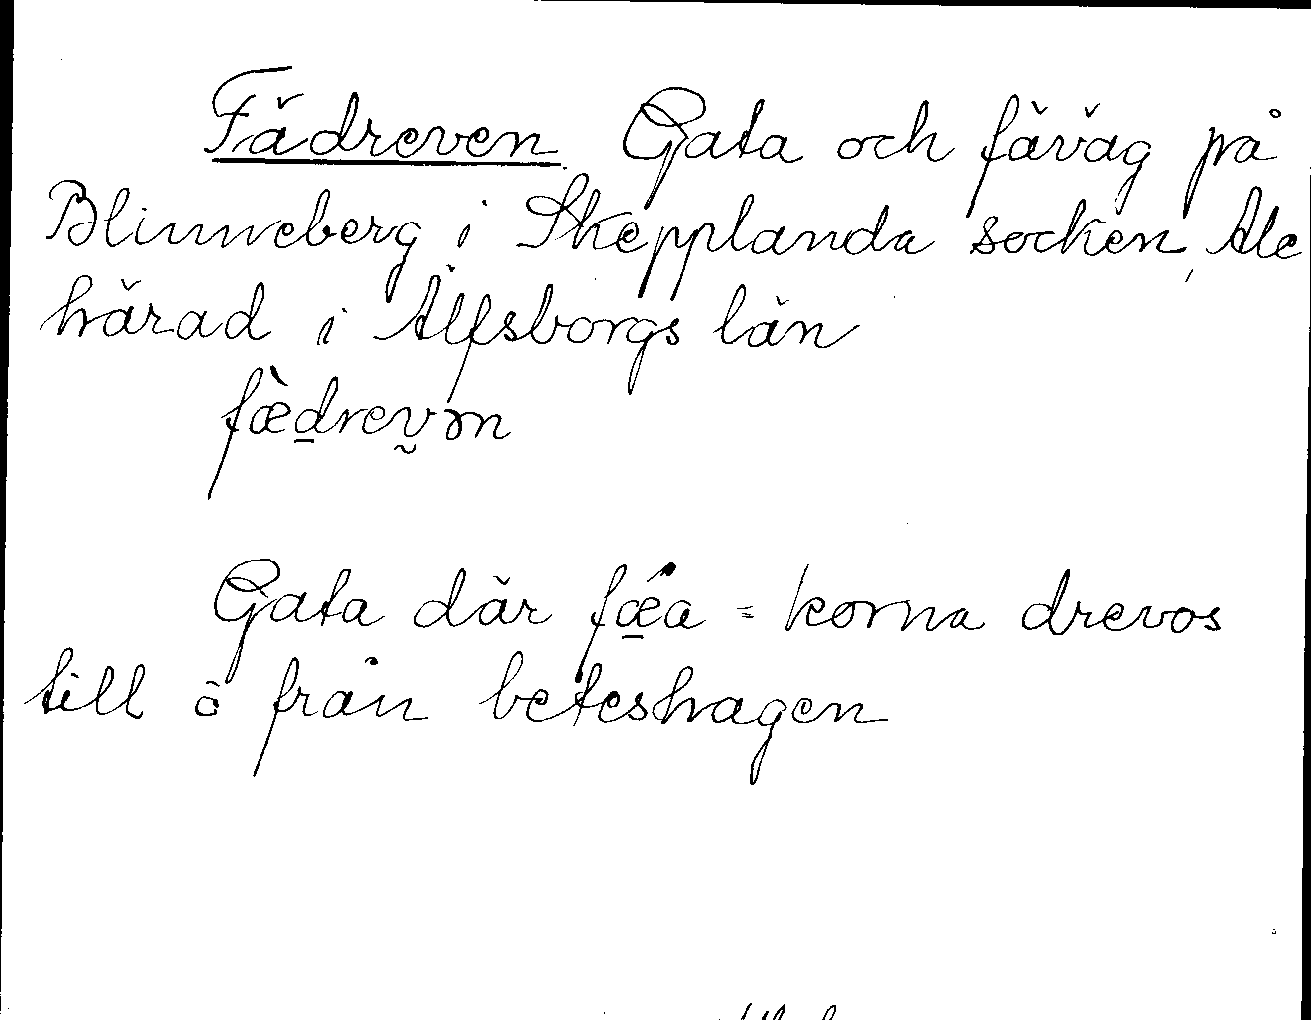 Fädreven Gata och fäväg på
Blinneberg i Skepplanda socken, Ale
härad i Älfsborgs län
fæ̀d̲rev̰ən
Gata där fǽ̲a = korna drevos
till å från beteshagen